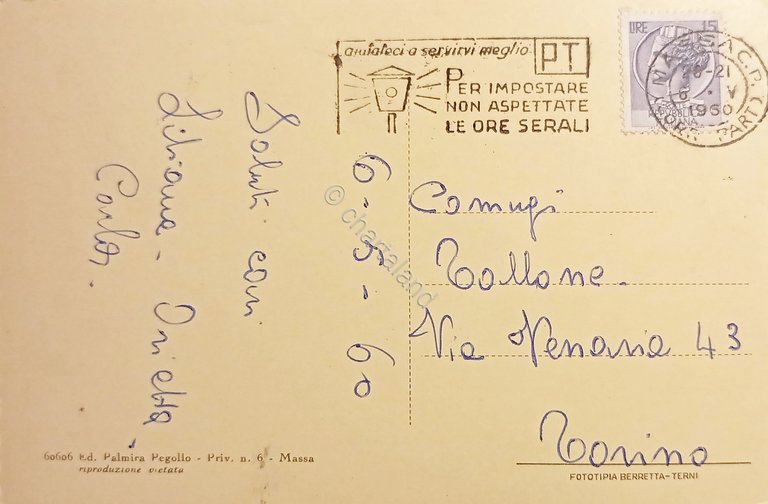 aiutateci a servirvi meglio
PT
PER IMPOSTARE
NON ASPETTATE
LE ORE SERALI
LIRE 15
MASSA C.P.
18-21
6 • V
1960
(CORR. PART.)
Saluti cari
Liliana - Orietta -
Carlo.
6-5-60
Coniugi
Tollone.
Via Venaria 43
Torino
© chartaland
60606 Ed. Palmira Pegollo - Priv. n. 6 - Massa
riproduzione vietata
FOTOTIPIA BERRETTA-TERNI